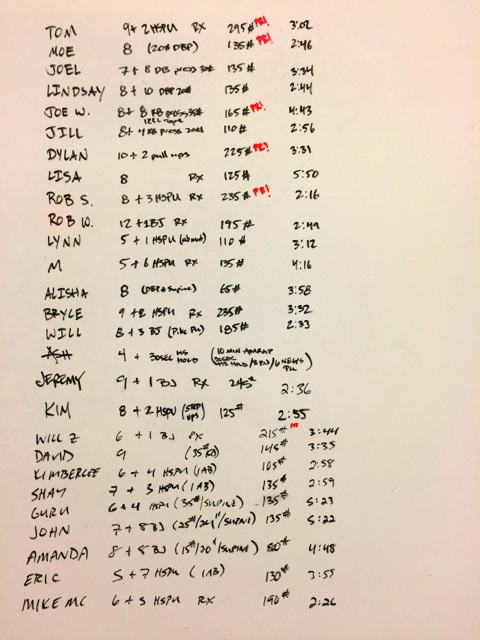 TOM 9 + 2 HSPU RX 295# PR! 3:02
MOE 8 (20# DBP) 135# PR! 2:46
JOEL 7 + 8 DB press 30# 135# 3:34
LINDSAY 8 + 10 DBP 20# 135# 2:44
JOE W. 8 + 8 KB press 35# 165# PR! 4:43
JILL 8 + 4 KB press 20# 110# 2:56
DYLAN 10 + 2 pull ups 225# PR! 3:31
LISA 8 RX 125# 5:50
ROB S. 8 + 3 HSPU RX 235# PR! 2:16
ROB W. 12 + 1 BJ RX 195# 2:49
LYNN 5 + 1 HSPU (abmat) 110# 3:12
M 5 + 6 HSPU RX 135# 4:16
ALISHA 8 (DBP Supine) 65# 3:58
BRYCE 9 + 8 HSPU RX 235# 3:32
WILL 8 + 3 BJ 185# 2:33
ASH 4 + 30SEC HS HOLD (10 MIN AMRAP
JEREMY 9 + 1 BJ RX 245# 2:36
KIM 8 + 2 HSPU (STEP UPS) 125# 2:55
WILL Z 6 + 1 BJ RX 215# PR 3:44
DAVID 9 (35# KB) 145# 3:35
KIMBERLEE 6 + 4 HSPU (1AB) 105# 2:58
SHAY 7 + 3 HSPU (1AB) 135# 2:59
GURU 6 + 4 HSPU (35#/SUPINE) 135# 5:23
JOHN 7 + 8 BJ (25#/24"/SUPINE) 135# 5:22
AMANDA 8 + 8 BJ (15#/20"/SUPINE) 80# 4:48
ERIC 5 + 7 HSPU (1AB) 130# 3:55
MIKE MC 6 + 5 HSPU RX 190# 2:26